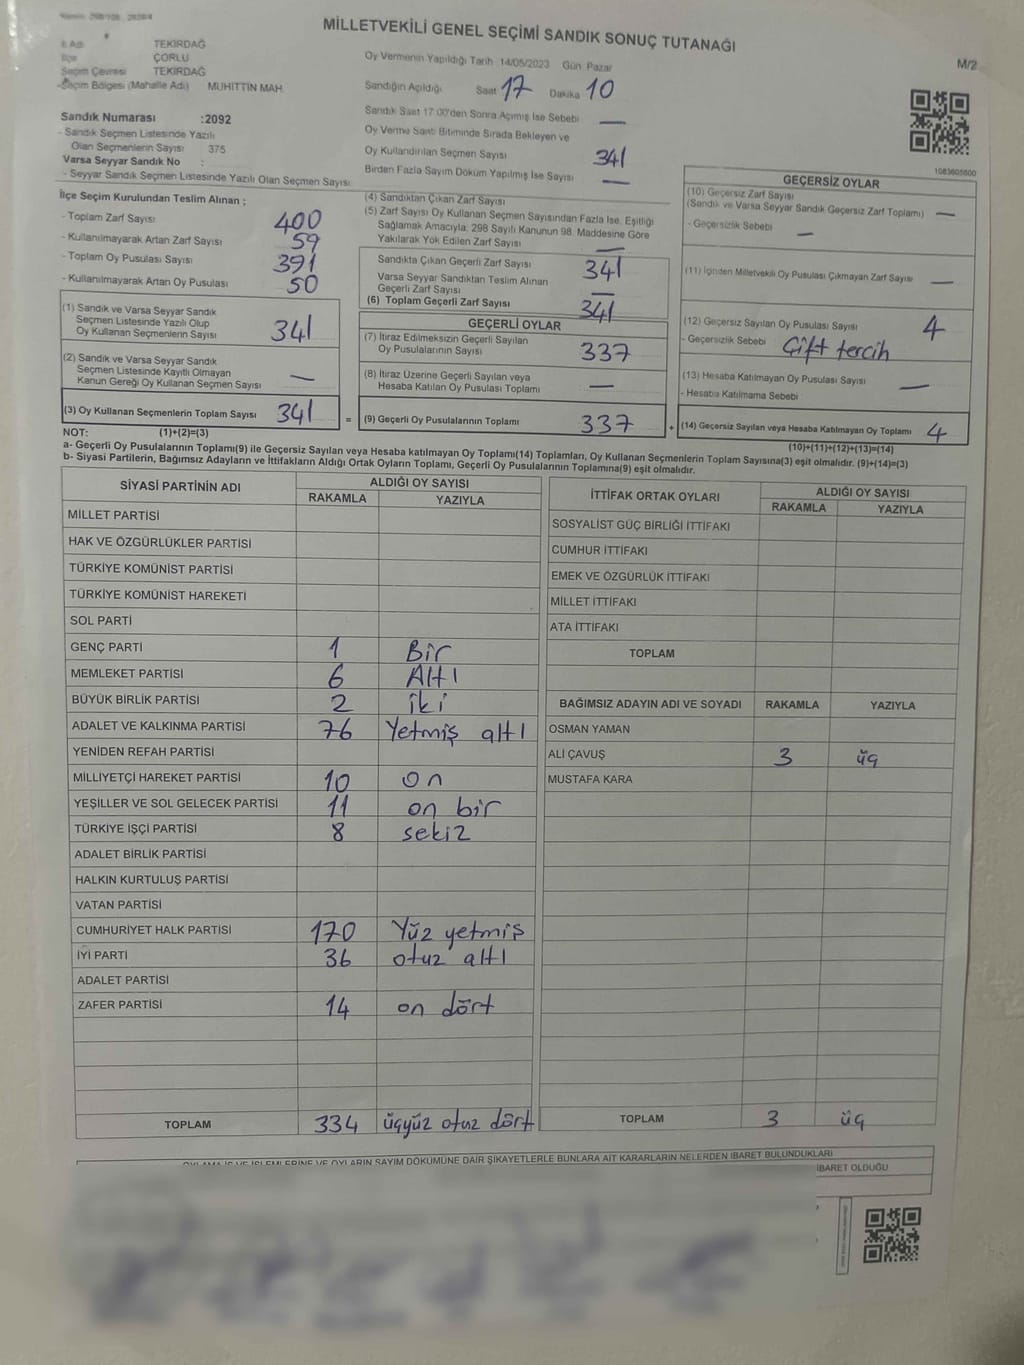 MİLLETVEKİLİ GENEL SEÇİMİ SANDIK SONUÇ TUTANAĞI
M/2
İl Adı TEKİRDAĞ
İlçe ÇORLU
Seçim Çevresi TEKİRDAĞ
Seçim Bölgesi (Mahalle Adı) MUHİTTİN MAH.
Oy Vermenin Yapıldığı Tarih 14/05/2023 Gün Pazar
Sandığın Açıldığı Saat 17 Dakika 10
Sandık Saat 17:00'den Sonra Açımış İse Sebebi —
Oy Verme Saati Bitiminde Sırada Bekleyen ve
Oy Kullandırılan Seçmen Sayısı 341
Birden Fazla Sayım Döküm Yapılmış İse Sayısı —
Sandık Numarası :2092
- Sandık Seçmen Listesinde Yazılı
Olan Seçmenlerin Sayısı 375
Varsa Seyyar Sandık No :
- Seyyar Sandık Seçmen Listesinde Yazılı Olan Seçmen Sayısı
1083605600
İlçe Seçim Kurulundan Teslim Alınan ;
- Toplam Zarf Sayısı 400
- Kullanılmayarak Artan Zarf Sayısı 59
- Toplam Oy Pusulası Sayısı 391
- Kullanılmayarak Artan Oy Pusulası 50
(1) Sandık ve Varsa Seyyar Sandık
Seçmen Listesinde Yazılı Olup
Oy Kullanan Seçmenlerin Sayısı 341
(2) Sandık ve Varsa Seyyar Sandık
Seçmen Listesinde Kayıtlı Olmayan
Kanun Gereği Oy Kullanan Seçmen Sayısı —
(3) Oy Kullanan Seçmenlerin Toplam Sayısı 341 =
(4) Sandıktan Çıkan Zarf Sayısı
(5) Zarf Sayısı Oy Kullanan Seçmen Sayısından Fazla İse, Eşitliği
Sağlamak Amacıyla, 298 Sayılı Kanunun 98. Maddesine Göre
Yakılarak Yok Edilen Zarf Sayısı —
Sandıkta Çıkan Geçerli Zarf Sayısı 341
Varsa Seyyar Sandıktan Teslim Alınan
Geçerli Zarf Sayısı —
(6) Toplam Geçerli Zarf Sayısı 341
GEÇERLİ OYLAR
(7) İtiraz Edilmeksizin Geçerli Sayılan
Oy Pusulalarının Sayısı 337
(8) İtiraz Üzerine Geçerli Sayılan veya
Hesaba Katılan Oy Pusulası Toplamı —
(9) Geçerli Oy Pusulalarının Toplamı 337 +
GEÇERSİZ OYLAR
(10) Geçersiz Zarf Sayısı
(Sandık ve Varsa Seyyar Sandık Geçersiz Zarf Toplamı) —
- Geçersizlik Sebebi —
(11) İçinden Milletvekili Oy Pusulası Çıkmayan Zarf Sayısı —
(12) Geçersiz Sayılan Oy Pusulası Sayısı 4
- Geçersizlik Sebebi Çift tercih
(13) Hesaba Katılmayan Oy Pusulası Sayısı —
- Hesaba Katılmama Sebebi
(14) Geçersiz Sayılan veya Hesaba Katılmayan Oy Toplamı 4
NOT: (1)+(2)=(3)
(10)+(11)+(12)+(13)=(14)
a- Geçerli Oy Pusulalarının Toplamı(9) ile Geçersiz Sayılan veya Hesaba katılmayan Oy Toplamı(14) Toplamları, Oy Kullanan Seçmenlerin Toplam Sayısına(3) eşit olmalıdır. (9)+(14)=(3)
b- Siyasi Partilerin, Bağımsız Adayların ve İttifakların Aldığı Ortak Oyların Toplamı, Geçerli Oy Pusulalarının Toplamına(9) eşit olmalıdır.
SİYASİ PARTİNİN ADI ALDIĞI OY SAYISI
RAKAMLA YAZIYLA
MİLLET PARTİSİ
HAK VE ÖZGÜRLÜKLER PARTİSİ
TÜRKİYE KOMÜNİST PARTİSİ
TÜRKİYE KOMÜNİST HAREKETİ
SOL PARTİ
GENÇ PARTİ 1 Bir
MEMLEKET PARTİSİ 6 Altı
BÜYÜK BİRLİK PARTİSİ 2 iki
ADALET VE KALKINMA PARTİSİ 76 Yetmiş altı
YENİDEN REFAH PARTİSİ
MİLLİYETÇİ HAREKET PARTİSİ 10 On
YEŞİLLER VE SOL GELECEK PARTİSİ 11 on bir
TÜRKİYE İŞÇİ PARTİSİ 8 sekiz
ADALET BİRLİK PARTİSİ
HALKIN KURTULUŞ PARTİSİ
VATAN PARTİSİ
CUMHURİYET HALK PARTİSİ 170 Yüz yetmiş
İYİ PARTİ 36 otuz altı
ADALET PARTİSİ
ZAFER PARTİSİ 14 on dört
TOPLAM 334 üçyüz otuz dört
İTTİFAK ORTAK OYLARI ALDIĞI OY SAYISI
RAKAMLA YAZIYLA
SOSYALİST GÜÇ BİRLİĞİ İTTİFAKI
CUMHUR İTTİFAKI
EMEK VE ÖZGÜRLÜK İTTİFAKI
MİLLET İTTİFAKI
ATA İTTİFAKI
TOPLAM
BAĞIMSIZ ADAYIN ADI VE SOYADI RAKAMLA YAZIYLA
OSMAN YAMAN
ALİ ÇAVUŞ 3 üç
MUSTAFA KARA
TOPLAM 3 üç
OYLAMA İŞ VE İŞLEMLERİNE VE OYLARIN SAYIM DÖKÜMÜNE DAİR ŞİKAYETLERLE BUNLARA AİT KARARLARIN NELERDEN İBARET BULUNDUKLARI
İBARET OLDUĞU